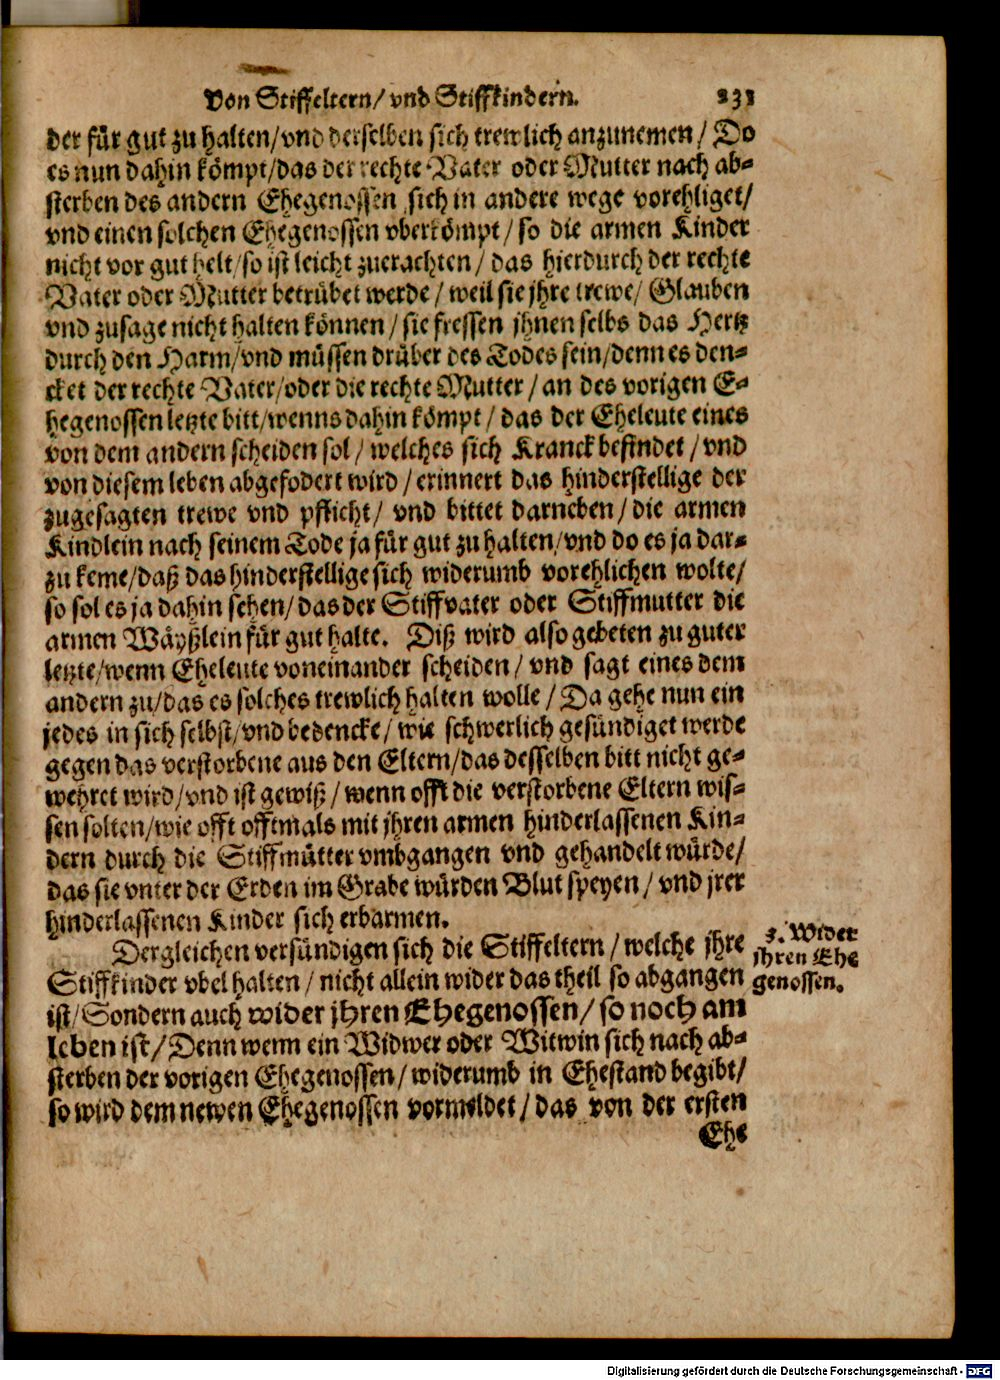 Von Stiffeltern/ vnd Stiffkindern. 231
der für gut zu halten/vnd derselben sich trewlich anzunemen/ Do
es nun dahin kömpt/das der rechte Vater oder Mutter nach ab-
sterben des andern Ehegenossen sich in andere wege vorehliget/
vnd einen solchen Ehegenossen vberkömpt/ so die armen Kinder
nicht vor gut helt/so ist leicht zuerachten/ das hierdurch der rechte
Vater oder Mutter betrübet werde/ weil sie jhre trewe/ Glauben
vnd zusage nicht halten können/ sie fressen jhnen selbs das Hertz
durch den Harm/vnd müssen drüber des Todes sein/denn es den-
cket der rechte Vater/oder die rechte Mutter/ an des vorigen E-
hegenossen letzte bitt/wenns dahin kömpt/ das der Eheleute eines
von dem andern scheiden sol/ welches sich Kranck befindet/ vnd
von diesem leben abgefodert wird/ erinnert das hinderstellige der
zugesagten trewe vnd pflicht/ vnd bittet darneben/ die armen
Kindlein nach seinem Tode ja für gut zu halten/vnd do es ja dar-
zu keme/daß das hinderstellige sich widerumb vorehlichen wolte/
so sol es ja dahin sehen/ das der Stiffvater oder Stiffmutter die
armen Wäyßlein für gut halte. Diß wird also gebeten zu guter
letzte/wenn Eheleute voneinander scheiden/ vnd sagt eines dem
andern zu/das es solches trewlich halten wolle/ Da gehe nun ein
jedes in sich selbst/vnd bedencke/ wie schwerlich gesündiget werde
gegen das verstorbene aus den Eltern/das desselben bitt nicht ge-
wehret wird/vnd ist gewiß/ wenn offt die verstorbene Eltern wis-
sen solten/wie offt offtmals mit jhren armen hinderlassenen Kin-
dern durch die Stiffmütter vmbgangen vnd gehandelt würde/
das sie vnter der Erden im Grabe würden Blut speyen/ vnd jrer
hinderlassenen Kinder sich erbarmen.
Dergleichen versündigen sich die Stiffeltern/ welche jhre
Stiffkinder vbel halten/ nicht allein wider das theil so abgangen
ist/ Sondern auch wider jhren Ehegenossen/ so noch am
leben ist/ Denn wenn ein Widwer oder Witwin sich nach ab-
sterben der vorigen Ehegenossen/ widerumb in Ehestand begibt/
so wird dem newen Ehegenossen vormeldet/ das von der ersten
Ehe
3. Wider
jhren Ehe
genossen.
Digitalisierung gefördert durch die Deutsche Forschungsgemeinschaft - DFG